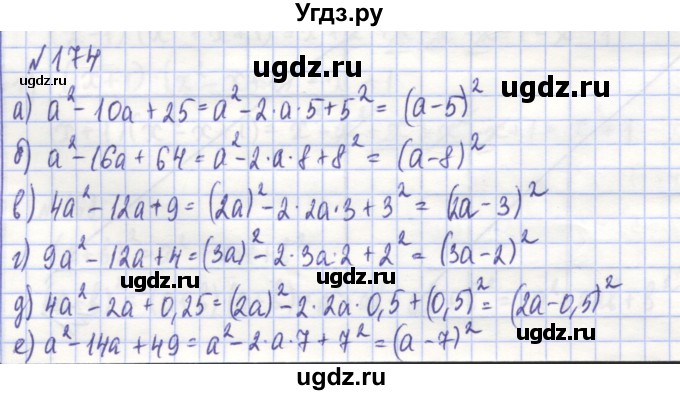 Угдз.ру
№174
ugdz.ru
ugdz.ru
ugdz.ru
а) a² - 10a + 25 = a² - 2·a·5 + 5² = (a - 5)²
б) a² - 16a + 64 = a² - 2·a·8 + 8² = (a - 8)²
ugdz.ru
в) 4a² - 12a + 9 = (2a)² - 2·2a·3 + 3² = (2a - 3)²
ugdz.ru
г) 9a² - 12a + 4 = (3a)² - 2·3a·2 + 2² = (3a - 2)²
ugdz.ru
ugdz.ru
д) 4a² - 2a + 0,25 = (2a)² - 2·2a·0,5 + (0,5)² = (2a - 0,5)²
е) a² - 14a + 49 = a² - 2·a·7 + 7² = (a - 7)²
ugdz.ru